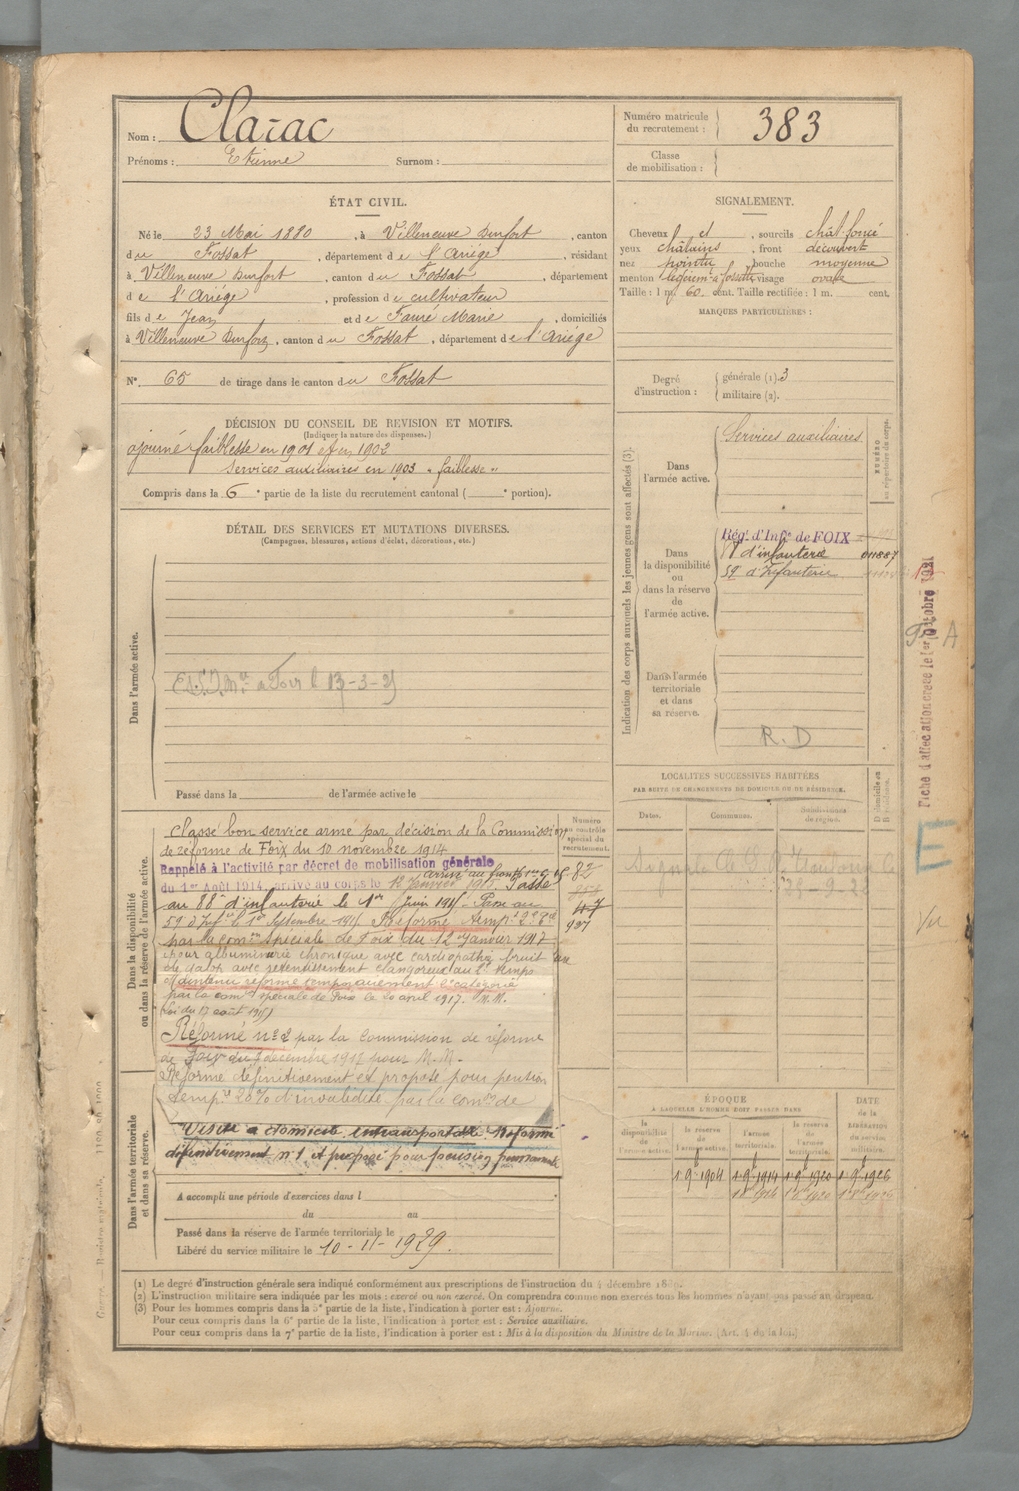 Nom : Clarac
Prénoms : Etienne Surnom :
Numéro matricule
du recrutement : 383
Classe
de mobilisation :
ÉTAT CIVIL.
Né le 23 Mai 1880, à Villeneuve Durfort, canton
du Fossat, département de l'Ariége, résidant
à Villeneuve Durfort, canton du Fossat, département
de l'Ariége, profession de cultivateur
fils de Jean et de Fauré Marie, domiciliés
à Villeneuve Durfort, canton du Fossat, département de l'Ariége
N° 65 de tirage dans le canton du Fossat
SIGNALEMENT.
Cheveux et, sourcils chât. foncé
yeux châtains, front découvert
nez pointu, bouche moyenne
menton visage ovale
Taille : 1 m. 60 cent. Taille rectifiée : 1 m. cent.
MARQUES PARTICULIÈRES :
Degré
d'instruction :
générale (1). 3
militaire (2).
DÉCISION DU CONSEIL DE REVISION ET MOTIFS.
(Indiquer la nature des dispenses.)
ajourné faiblesse en 1901 et en 1902
Services auxiliaires en 1903 « faiblesse »
Compris dans la 6e partie de la liste du recrutement cantonal ( e portion).
DÉTAIL DES SERVICES ET MUTATIONS DIVERSES.
(Campagnes, blessures, actions d'éclat, décorations, etc.)
Dans l'armée active.
a Foix le 13-3-
Passé dans la de l'armée active le
Indication des corps auxquels les jeunes gens sont affectés (3).
NUMÉRO
au répertoire du corps.
Dans
l'armée active.
Services auxiliaires
Dans
la disponibilité
ou
dans la réserve
de
l'armée active.
Rég.t d'Inf.ie de FOIX
88 d'infanterie 011887
59e d'Infanterie
Dans l'armée
territoriale
et dans
sa réserve.
R. D
Fiche d'affectation creee le 1er Octobre 1931
A
E
Vu
LOCALITÉS SUCCESSIVES HABITÉES
PAR SUITE DE CHANGEMENTS DE DOMICILE OU DE RÉSIDENCE.
Dates. Communes. Subdivisions
de région. Domicile ou
Résidence.
Signalé Toulouse le
28-9-22
Dans la disponibilité
ou dans la réserve de l'armée active.
Numéro
au contrôle
spécial du
recrutement.
Classé bon service armé par décision de la Commission
de réforme de Foix du 10 novembre 1914
Rappelé à l'activité par décret de mobilisation générale
du 1er Août 1914, arrivé au corps le 12 Janvier 1915. Passé
au 88e d'infanterie le 1er Juin 1915. Passé au
59e d'Inf.ie le 1er Septembre 1915 Réformé temp.t 2e
par la com.on spéciale de Foix du 12 Janvier 1917
pour albuminurie chronique avec cardiopathie bruit
de galop avec retentissement clangoreux au 2e temps
Maintenu réformé temporairement 1e catégorie
par la com.on spéciale de Foix le 20 avril 1917. M.M.
(Loi du 17 août 1915)
Réformé n° 2 par la Commission de réforme
de Foix du 7 décembre 1917 pour M.M.
Réformé définitivement et proposé pour pension
temp.re 20% d'invalidité par la com.on de
82
47
927
Visite à domicile intransportable Réformé
définitivement n° 1 et proposé pour pension permanente
Dans l'armée territoriale
et dans sa réserve.
A accompli une période d'exercices dans l
du au
Passé dans la réserve de l'armée territoriale le
Libéré du service militaire le 10-11-1929.
ÉPOQUE
À LAQUELLE L'HOMME DOIT PASSER DANS
DATE
de la
LIBÉRATION
du service
militaire.
la
disponibilité de
l'armée active.
la réserve
de
l'armée active.
l'armée
territoriale.
la réserve
de
l'armée
territoriale.
1 9bre 1904 1 9bre 1914 1 9bre 1920 1 9bre 1926
(1) Le degré d'instruction générale sera indiqué conformément aux prescriptions de l'instruction du 4 décembre 1889.
(2) L'instruction militaire sera indiquée par les mots : exercé ou non exercé. On comprendra comme non exercés tous les hommes n'ayant pas passé au drapeau.
(3) Pour les hommes compris dans la 5e partie de la liste, l'indication à porter est : Ajourné.
Pour ceux compris dans la 6e partie de la liste, l'indication à porter est : Service auxiliaire.
Pour ceux compris dans la 7e partie de la liste, l'indication à porter est : Mis à la disposition du Ministre de la Marine. (Art. 4 de la loi.)